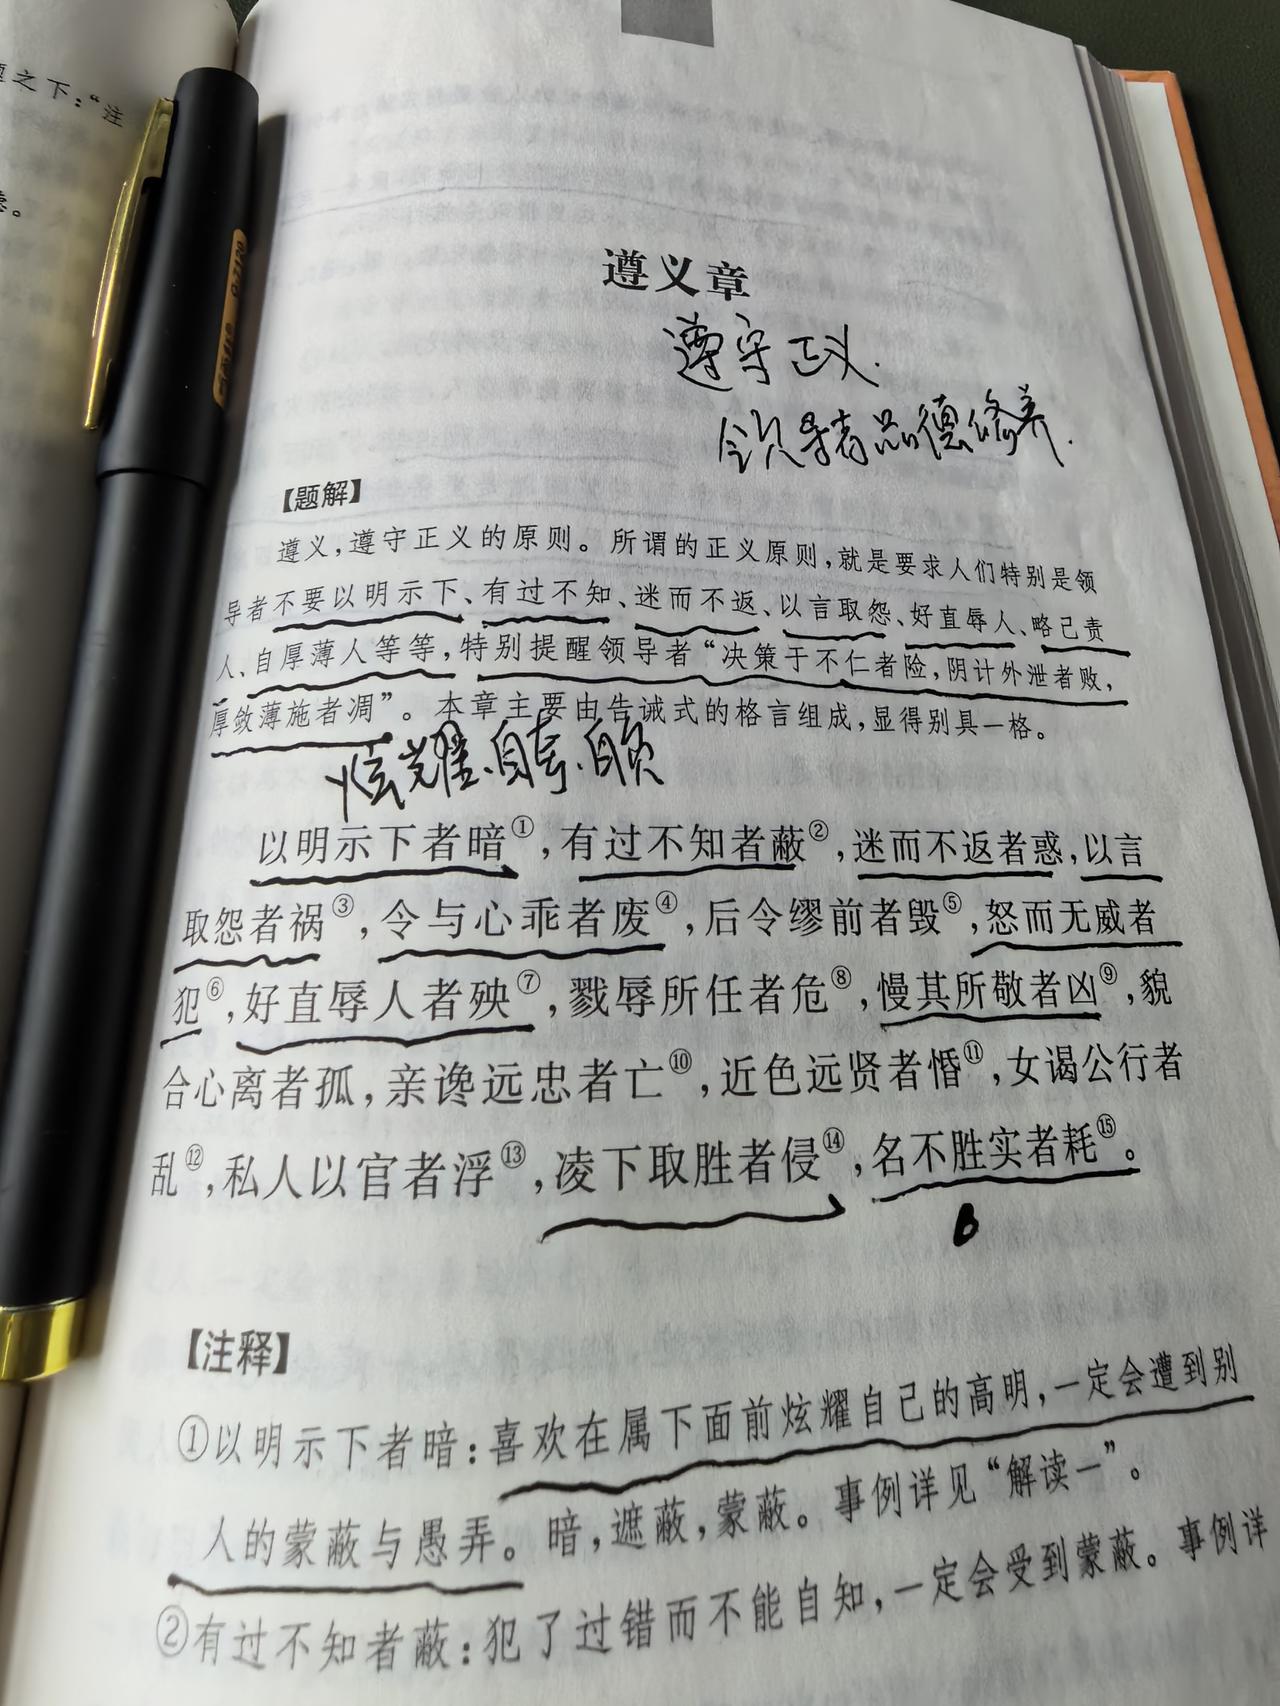 题之下：“注
遵义章
遵守正义.
领导者品德修养.
【题解】
遵义，遵守正义的原则。所谓的正义原则，就是要求人们特别是领
导者不要以明示下、有过不知、迷而不返、以言取怨、好直辱人、略己责
人、自厚薄人等等，特别提醒领导者“决策于不仁者险，阴计外泄者败，
厚敛薄施者凋”。本章主要由告诫式的格言组成，显得别具一格。
炫耀、自夸、自负
以明示下者暗①，有过不知者蔽②，迷而不返者惑，以言
取怨者祸③，令与心乖者废④，后令缪前者毁⑤，怒而无威者
犯⑥，好直辱人者殃⑦，戮辱所任者危⑧，慢其所敬者凶⑨，貌
合心离者孤，亲谗远忠者亡⑩，近色远贤者惛⑪，女谒公行者
乱⑫，私人以官者浮⑬，凌下取胜者侵⑭，名不胜实者耗⑮。
【注释】
①以明示下者暗：喜欢在属下面前炫耀自己的高明，一定会遭到别
人的蒙蔽与愚弄。暗，遮蔽，蒙蔽。事例详见“解读一”。
②有过不知者蔽：犯了过错而不能自知，一定会受到蒙蔽。事例详